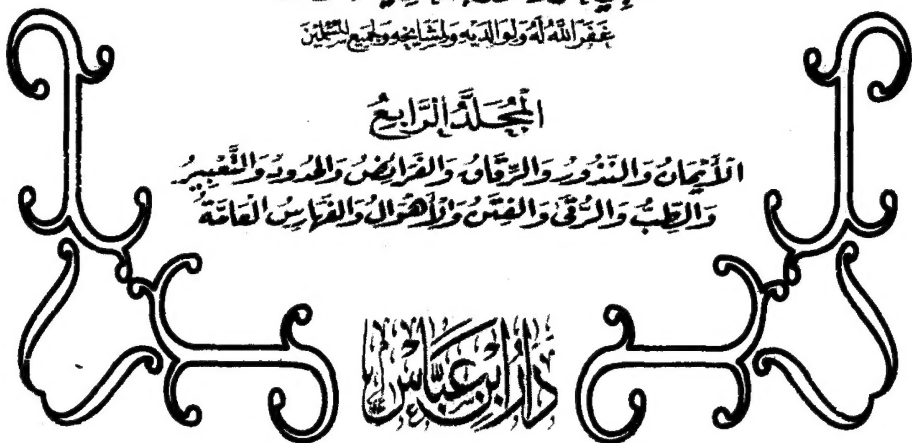 غَفَرَ اللهُ لَهُ وَلِوَالِدَيْهِ وَلِمَشَايِخِهِ وَلِجَمِيعِ الْمُسْلِمِينَ
الْمُجَلَّدُ الرَّابِعُ
الْأَيْمَانُ وَالنُّذُورُ وَالرِّقَاقُ وَالْفَرَائِضُ وَالْحُدُودُ وَالتَّعْبِيرُ
وَالطِّبُّ وَالرُّقَى وَالْفِتَنُ وَالْأَهْوَالُ وَالْفَهَارِسُ الْعَامَّةُ
دَارُ ابْنِ عَبَّاسٍ